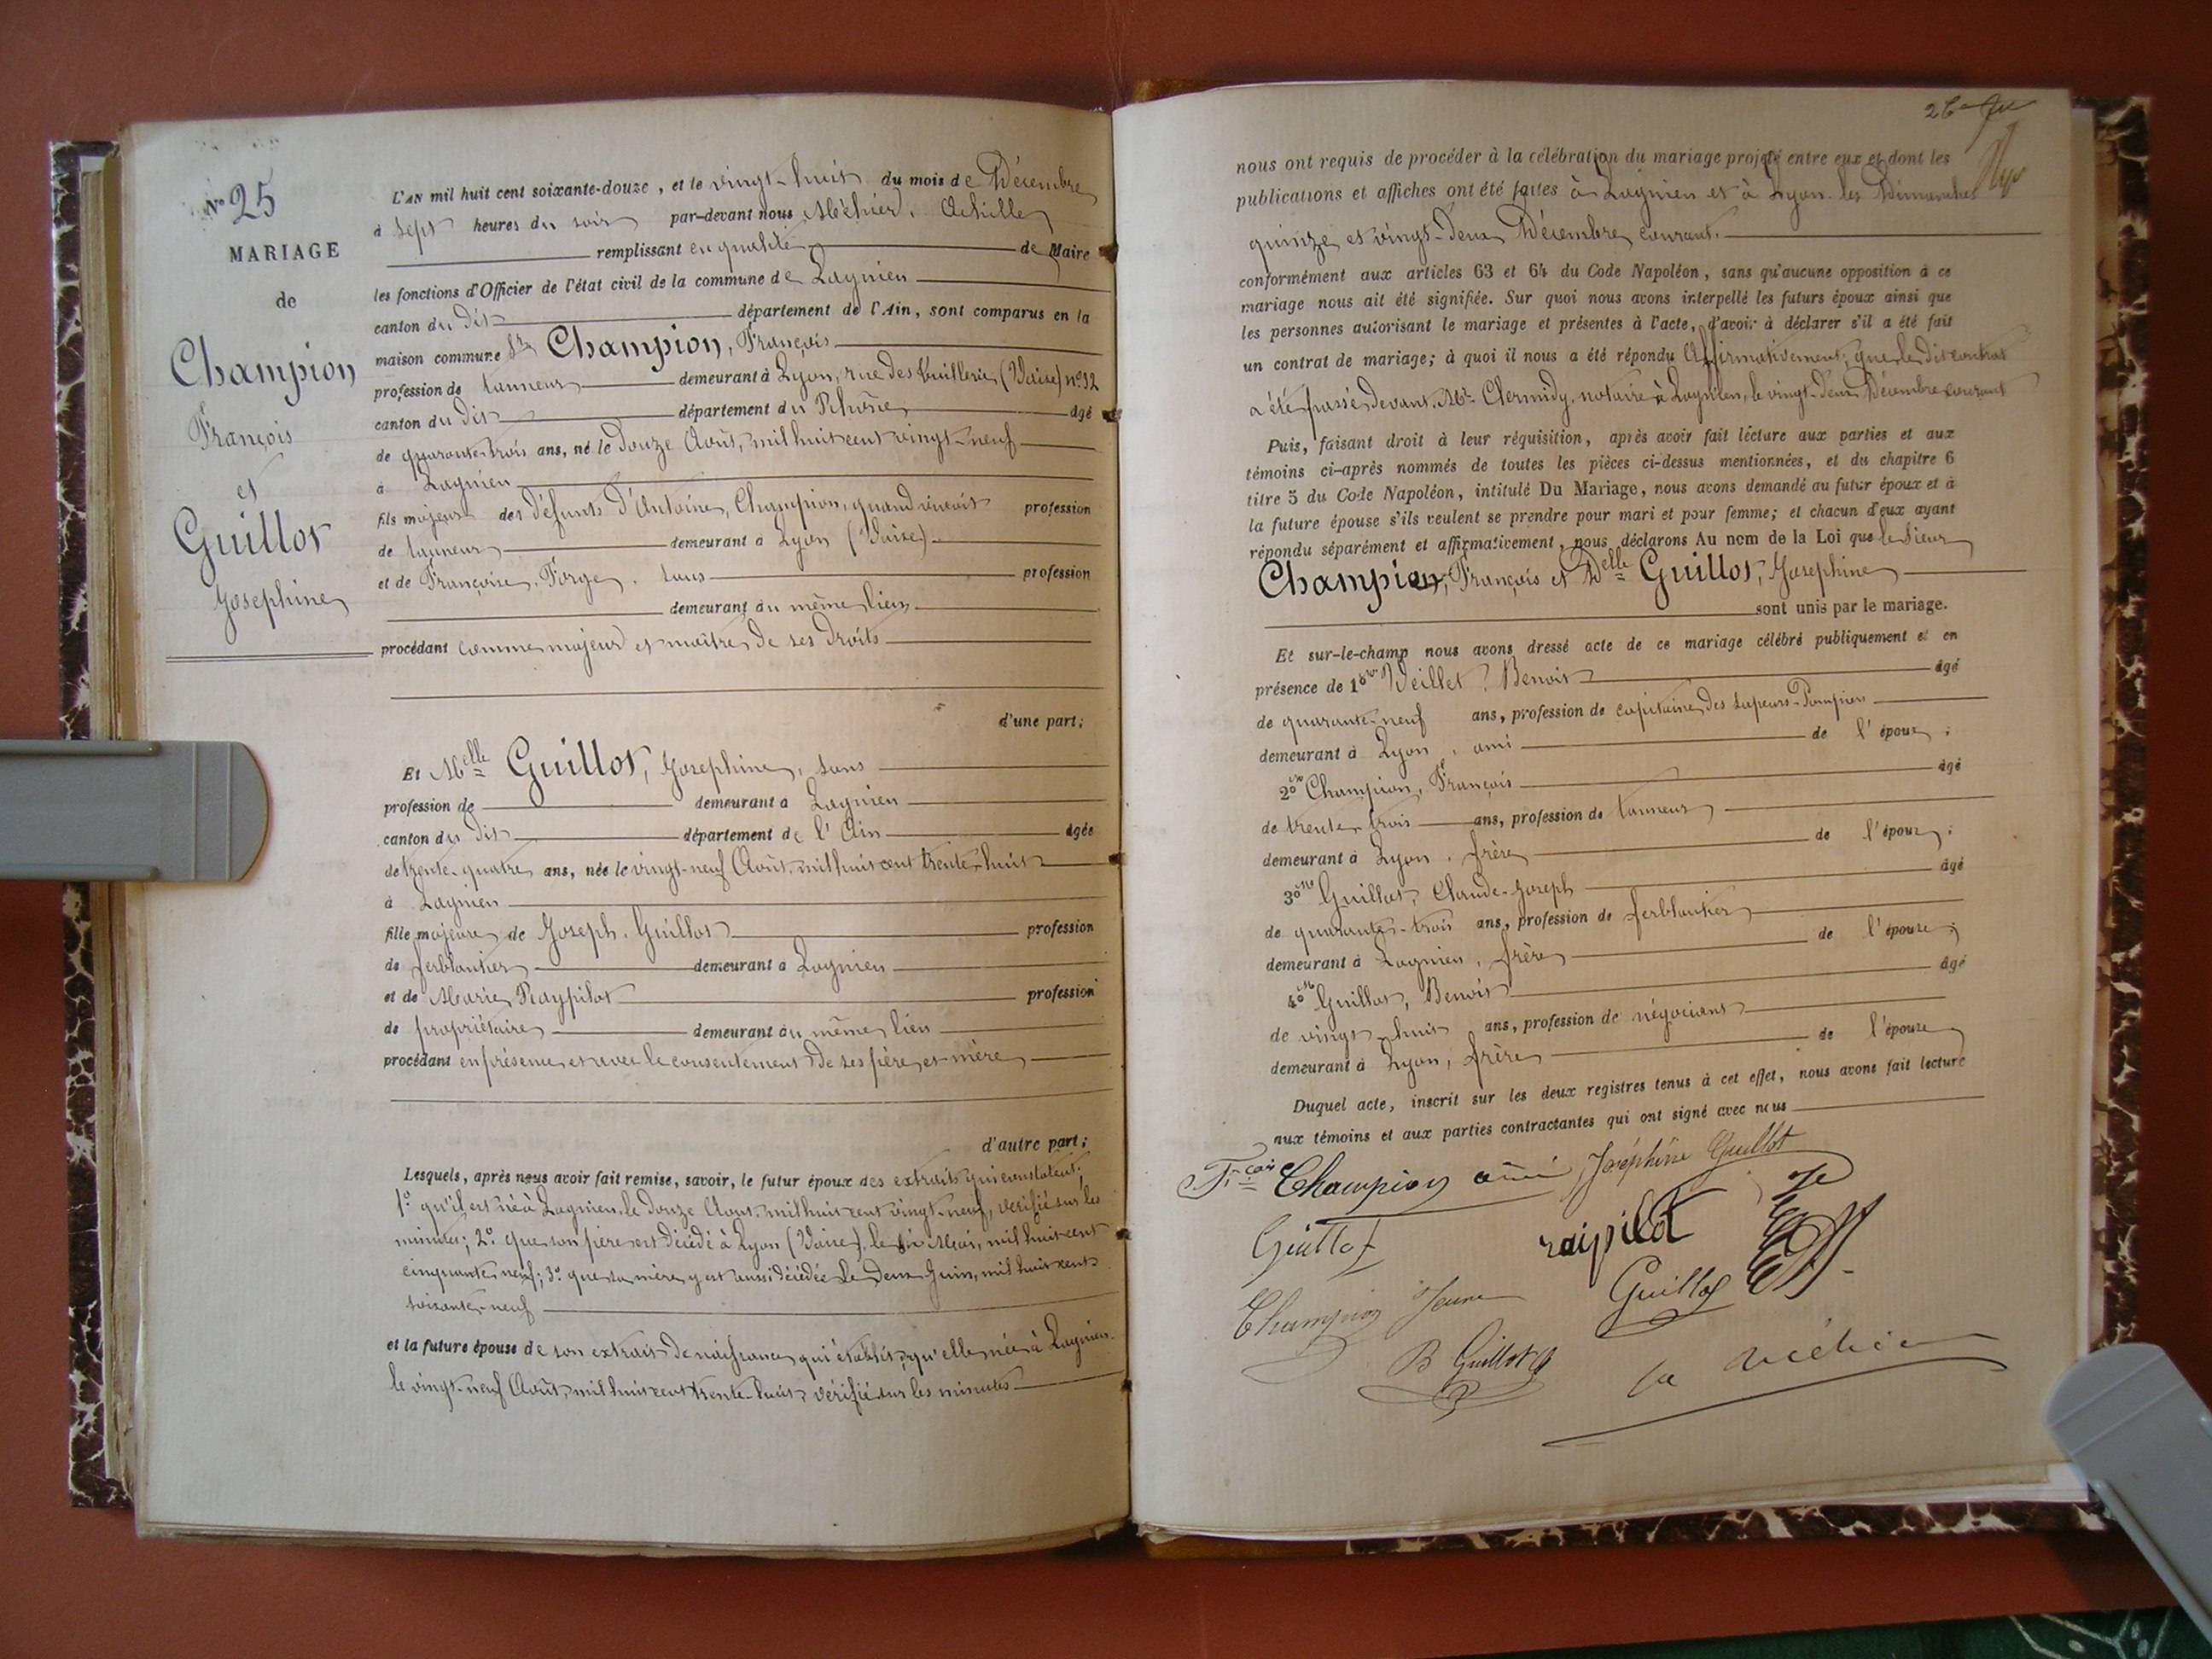 N° 25
MARIAGE
de
Champion
François
et
Guillot
Josephine
L'AN mil huit cent soixante-douze, et le vingt-huit du mois de Décembre
à sept heures du soir par-devant nous Méhier, Achille
remplissant en qualité de Maire
les fonctions d'Officier de l'état civil de la commune de Lagnieu
canton du dit département de l'Ain, sont comparus en la
maison commune Sr Champion, François
profession de tanneur demeurant à Lyon, rue des Tuilleries (Vaise) n° 12
canton du dit département du Rhône âgé
de quarante-trois ans, né le douze Août, mil huit cent vingt-neuf
à Lagnieu
fils majeur des défunts d'Antoine, Champion, quand vivait profession
de tanneur demeurant à Lyon (Vaise)
et de Françoise, Forge, sans profession
demeurant au même lieu
procédant comme majeur et maître de ses droits
d'une part;
Et Melle Guillot, Josephine, sans
profession de demeurant à Lagnieu
canton du dit département de l'Ain âgée
de trente-quatre ans, née le vingt-neuf Août, mil huit cent trente-huit
à Lagnieu
fille majeure de Joseph, Guillot profession
de ferblantier demeurant à Lagnieu
et de Marie, Raypilot profession
de propriétaire demeurant au même lieu
procédant en présence et avec le consentement de ses père et mère
d'autre part;
Lesquels, après nous avoir fait remise, savoir, le futur époux des extraits qui constatent;
1° qu'il est né à Lagnieu, le douze Août, mil huit cent vingt-neuf, vérifié sur les
minutes; 2° que son père est décédé à Lyon (Vaise), le six Mai, mil huit cent
cinquante neuf; 3° que sa mère y est aussi décédée le deux Juin, mil huit cent
soixante-neuf
et la future épouse de son extrait de naissance qui établit, qu'elle née à Lagnieu
le vingt-neuf Août, mil huit cent trente-huit, vérifié sur les minutes
nous ont requis de procéder à la célébration du mariage projeté entre eux et dont les
publications et affiches ont été faites à Lagnieu et à Lyon, les Dimanches
quinze et vingt-deux Décembre courant.
conformément aux articles 63 et 64 du Code Napoléon, sans qu'aucune opposition à ce
mariage nous ait été signifiée. Sur quoi nous avons interpellé les futurs époux ainsi que
les personnes autorisant le mariage et présentes à l'acte, d'avoir à déclarer s'il a été fait
un contrat de mariage; à quoi il nous a été répondu Affirmativement; que le dit contrat
a été passé devant Me Clermidy, notaire à Lagnieu, le vingt-deux Décembre courant
Puis, faisant droit à leur réquisition, après avoir fait lecture aux parties et aux
témoins ci-après nommés de toutes les pièces ci-dessus mentionnées, et du chapitre 6
titre 5 du Code Napoléon, intitulé Du Mariage, nous avons demandé au futur époux et à
la future épouse s'ils veulent se prendre pour mari et pour femme; et chacun d'eux ayant
répondu séparément et affirmativement, nous déclarons Au nom de la Loi que le Sieur
Champion, François et Delle Guillot, Josephine
sont unis par le mariage.
Et sur-le-champ nous avons dressé acte de ce mariage célébré publiquement et en
présence de 1° Veillet, Benoit âgé
de quarante-neuf ans, profession de capitaine des Sapeurs-Pompiers
demeurant à Lyon, ami de l'époux;
2° Champion, François âgé
de trente-trois ans, profession de tanneur
demeurant à Lyon, frère de l'époux;
3° Guillot, Claude-Joseph âgé
de quarante-trois ans, profession de ferblantier
demeurant à Lagnieu, frère de l'épouse;
4° Guillot, Benoit âgé
de vingt-huit ans, profession de négociant
demeurant à Lyon, frère de l'épouse
Duquel acte, inscrit sur les deux registres tenus à cet effet, nous avons fait lecture
aux témoins et aux parties contractantes qui ont signé avec nous
Fçois Champion ainé Joséphine Guillot
Guillot raipilot
Champion Jeune Guillot
B Guillot A Méhier